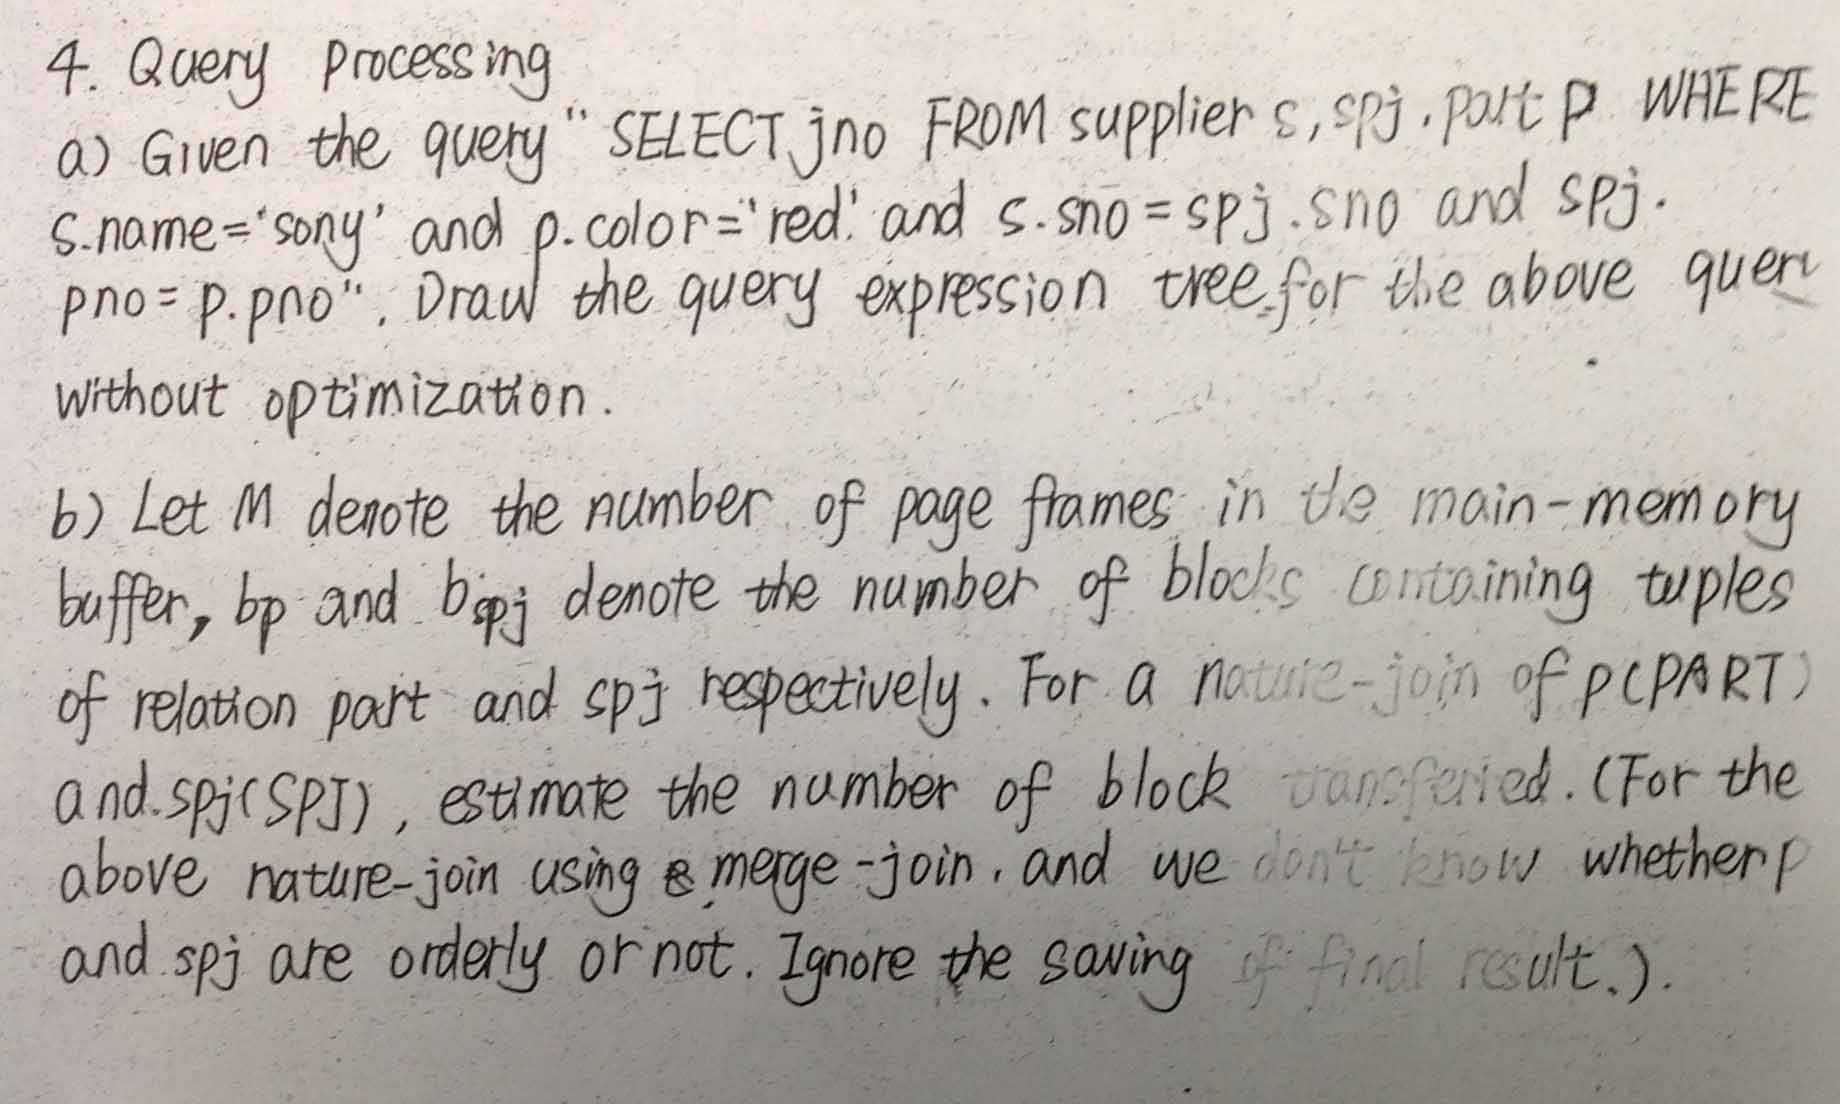 4. Query Processing
a) Given the query "SELECT jno FROM supplier s, spj, part p WHERE
s.name='sony' and p.color='red' and s.sno=spj.sno and spj.
pno=p.pno". Draw the query expression tree for the above quer
without optimization.
b) Let M denote the number of page frames in the main-memory
buffer, bp and bspj denote the number of blocks containing tuples
of relation part and spj respectively. For a nature-join of p(PART)
and.spj(SPJ), estimate the number of block transferred. (For the
above nature-join using merge-join, and we don't know whether p
and spj are orderly or not. Ignore the saving of final result.).